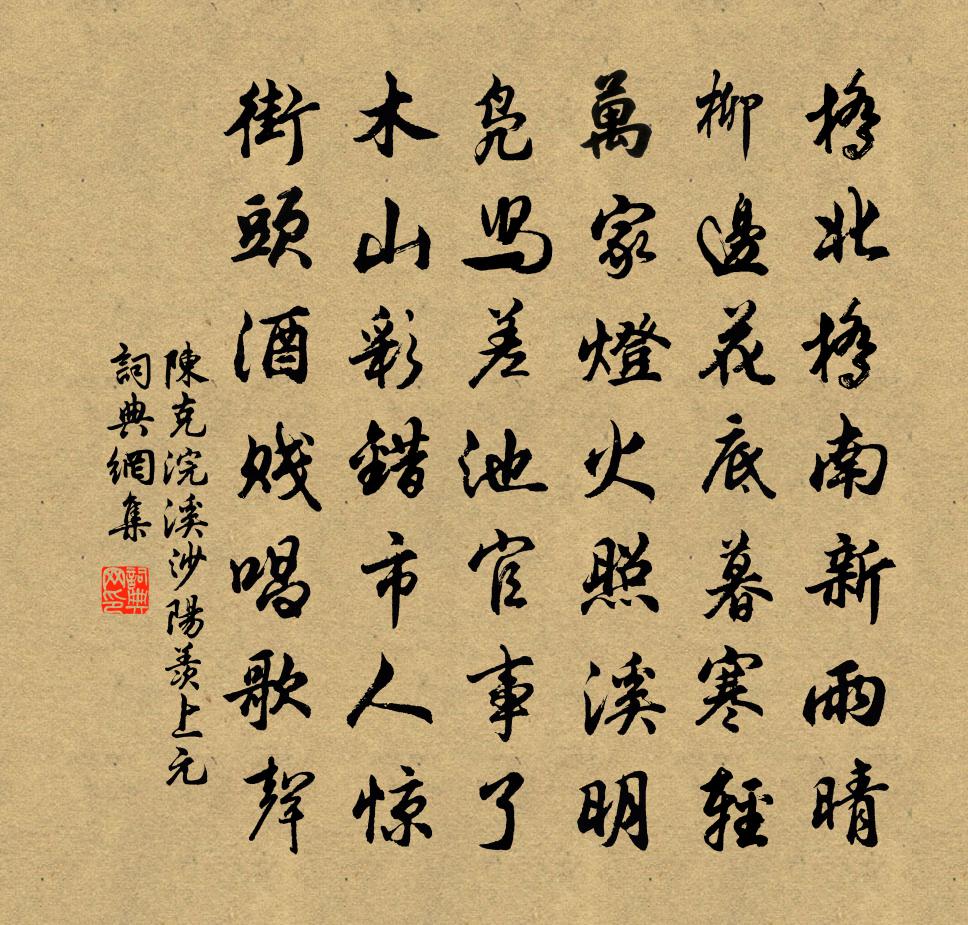 橋北橋南新雨晴
柳邊花底暮寒輕
萬家燈火照溪明
鳧舄差池官事了
木山彩錯市人惊
街頭酒賤唱歌聲
陳克浣溪沙陽羨上元
詞典網集
詞典网印